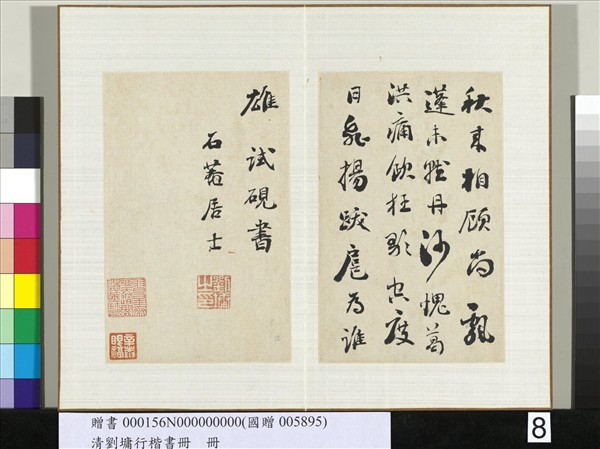 秋来相顧尚飄
蓬未就丹沙愧葛
洪痛飲狂歌空度
日飛揚跋扈為誰
雄 試硯書
石菴居士
劉墉之印
贈書 000156N000000000(國贈 005895)
清劉墉行楷書冊 冊
8